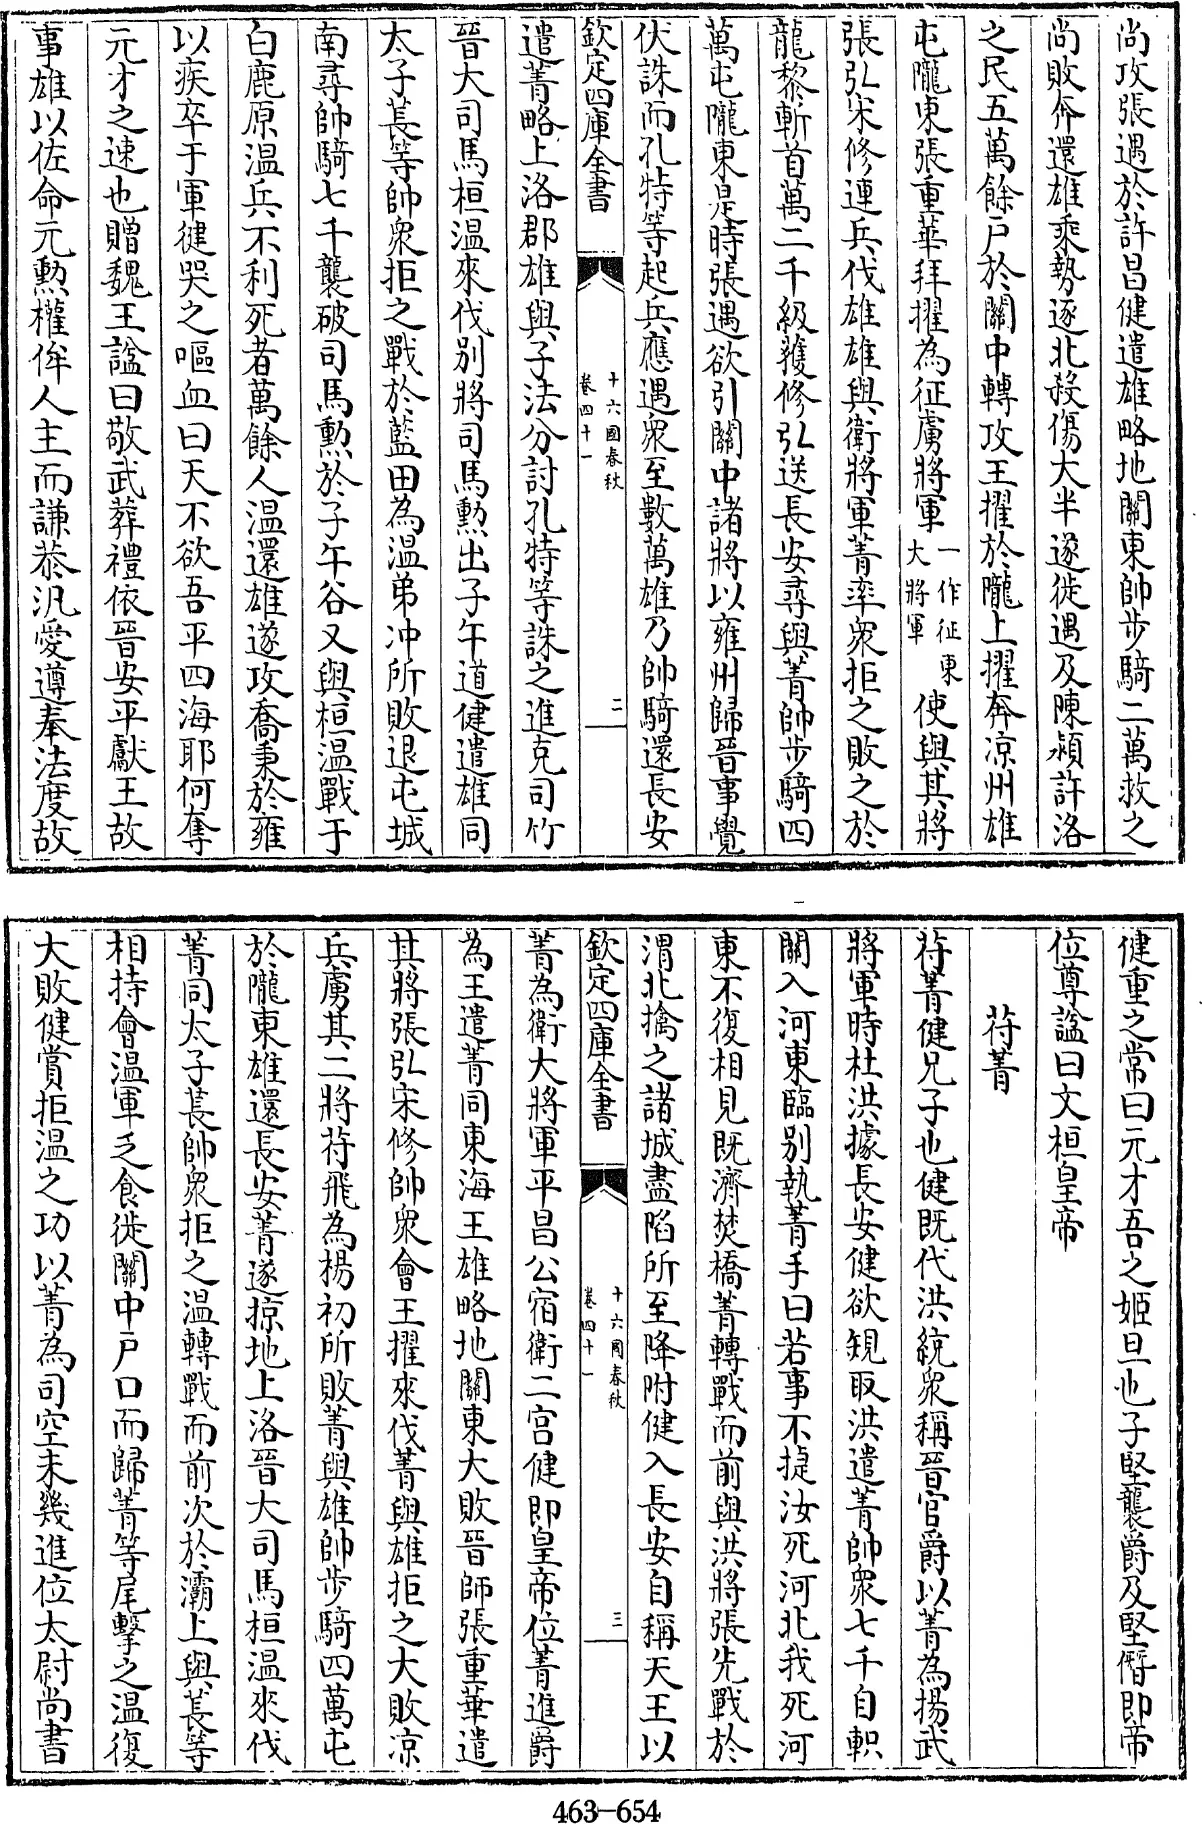 尚攻張遇於許昌健遣雄略地關東帥步騎二萬救之
尚敗奔還雄乘勢逐北殺傷大半遂徙遇及陳潁許洛
之民五萬餘戶於關中轉攻王擢於隴上擢奔凉州雄
屯隴東張重華拜擢為征虜將軍一作征東大將軍使與其將
張弘宋修連兵伐雄雄與衛將軍菁率衆拒之敗之於
龍黎斬首萬二千級獲修弘送長安尋與菁帥步騎四
萬屯隴東是時張遇欲引關中諸將以雍州歸晉事覺
伏誅而孔特等起兵應遇衆至數萬雄乃帥騎還長安
欽定四庫全書
十六國春秋
卷四十一
二
遣菁略上洛郡雄與子法分討孔特等誅之進克司竹
晉大司馬桓温來伐别將司馬勲出子午道健遣雄同
太子萇等帥衆拒之戰於藍田為温弟沖所敗退屯城
南尋帥騎七千襲破司馬勲於子午谷又與桓温戰于
白鹿原温兵不利死者萬餘人温還雄遂攻喬秉於雍
以疾卒于軍健哭之嘔血曰天不欲吾平四海耶何奪
元才之速也贈魏王諡曰敬武葬禮依晉安平獻王故
事雄以佐命元勲權侔人主而謙恭汎愛遵奉法度故
健重之常曰元才吾之姬旦也子堅襲爵及堅僭即帝
位尊諡曰文桓皇帝
苻菁
苻菁健兄子也健既代洪統衆稱晉官爵以菁為揚武
將軍時杜洪據長安健欲規取洪遣菁帥衆七千自軹
關入河東臨别執菁手曰若事不捷汝死河北我死河
東不復相見既濟焚橋菁轉戰而前與洪將張先戰於
渭北擒之諸城盡陷所至降附健入長安自稱天王以
欽定四庫全書
十六國春秋
卷四十一
三
菁為衛大將軍平昌公宿衛二宫健即皇帝位菁進爵
為王遣菁同東海王雄略地關東大敗晉師張重華遣
其將張弘宋修帥衆會王擢來伐菁與雄拒之大敗凉
兵虜其二將苻飛為楊初所敗菁與雄帥步騎四萬屯
於隴東雄還長安菁遂掠地上洛晉大司馬桓温來伐
菁同太子萇帥衆拒之温轉戰而前次於灞上與萇等
相持會温軍乏食徙關中戶口而歸菁等尾擊之温復
大敗健賞拒温之功以菁為司空未幾進位太尉尚書
463-654